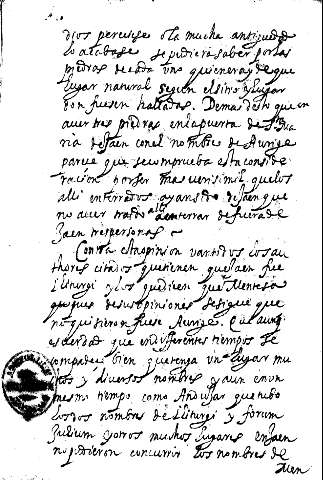 dios perecisse o la mucha antiguedad
lo acabase se pudiera saber por las
piedras de cada uno quien era y de que
lugar natural segun el sitio y lugar
don fuesen halladas. Demas desto que en
aver tres piedras en la puerta de Sta Ma
ria de Jaen con el nombre de Aurige
parece que se comprueba esta conside
racion por ser mas verisimil que los
alli enterrados ayan sido de Jaen que
no aver traido alli a enterrar de fuera de
Jaen tres personas
Contra esta opinion van todos los au
thores citados que tienen que Jaen fue
Iliturgi y los que dicen que Mentesa
pues de sus opiniones se sigue que
no quisieron fuese Aurige. Que aunq
es verdad que en differentes tiempos se
compadece bien que tenga un lugar mu
chos y diversos nombres y aun en un
mesmo tiempo como Andujar que tubo
los dos nombres de Iliturgi y forum
Julium y otros muchos lugares en Jaen
no pudieron concurrir los nombres de
Men